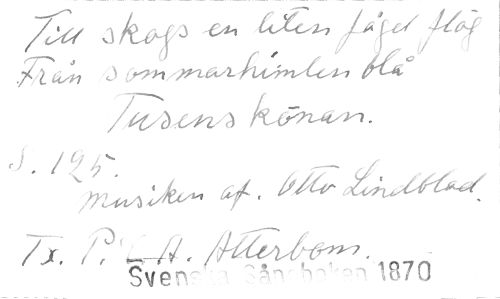 Till skogs en liten fågel flög
Från sommarhimlen blå
Tusenskönan.
S. 125.
musiken af. Otto Lindblad.
Tx. P. D. A. Atterbom.
Svenska Sångboken 1870